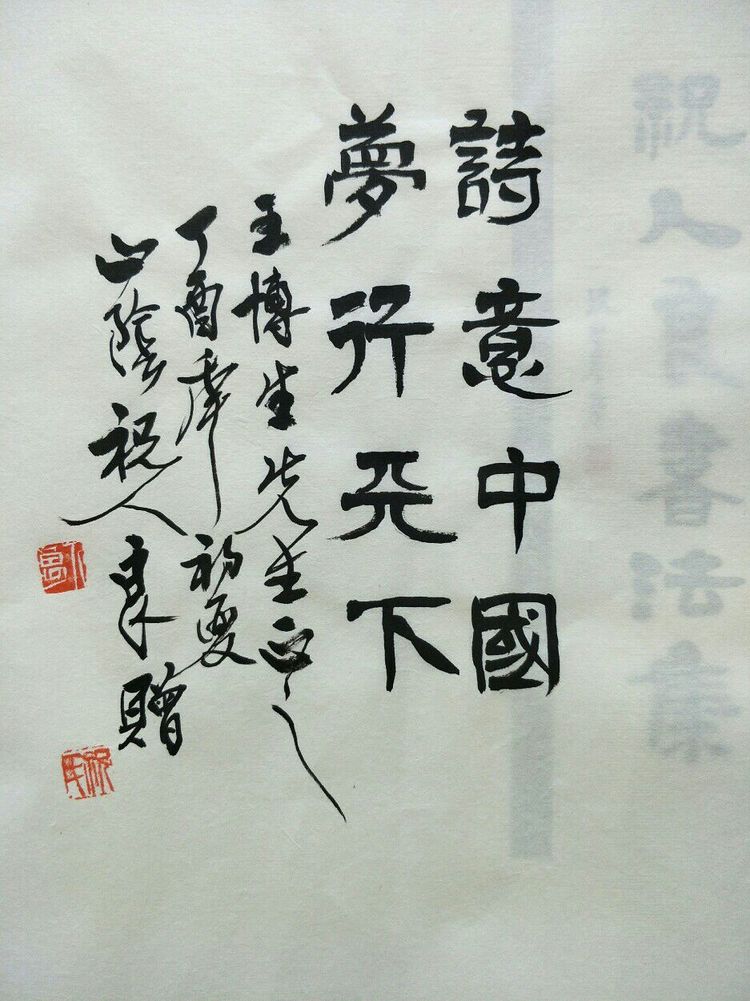 祝人良書法集
詩意中國
夢行天下
王博生先生正之
丁酉年初夏
山陰祝人良贈